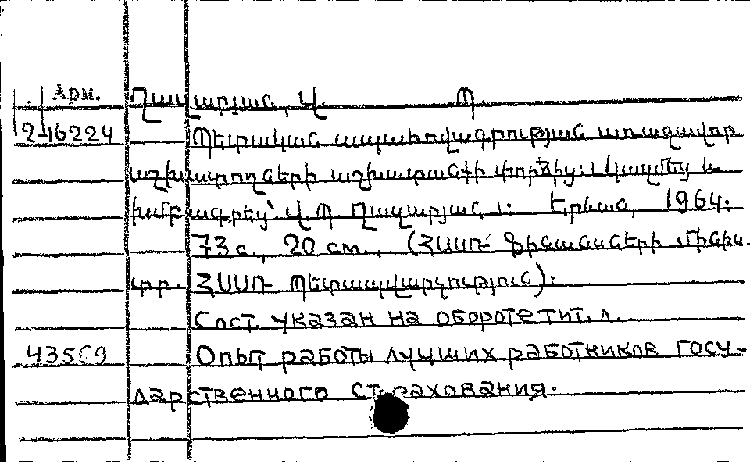 Арм. Ղազարյան, Վ. Պ.
2-16224 Պետական ապահովագրության առաջավոր
աշխատողների աշխատանքի փորձից: Կազմեց և
խմբագրեց՝ Վ. Պ. Ղազարյան: Երևան, 1964:
73 с., 20 см., (ՀՍՍՌ Ֆինանսների մինիս-
տր. ՀՍՍՌ Պետապվարչություն):
Сост. указан на обороте тит. л.
Опыт работы лучших работников госу-
дарственного страхования.